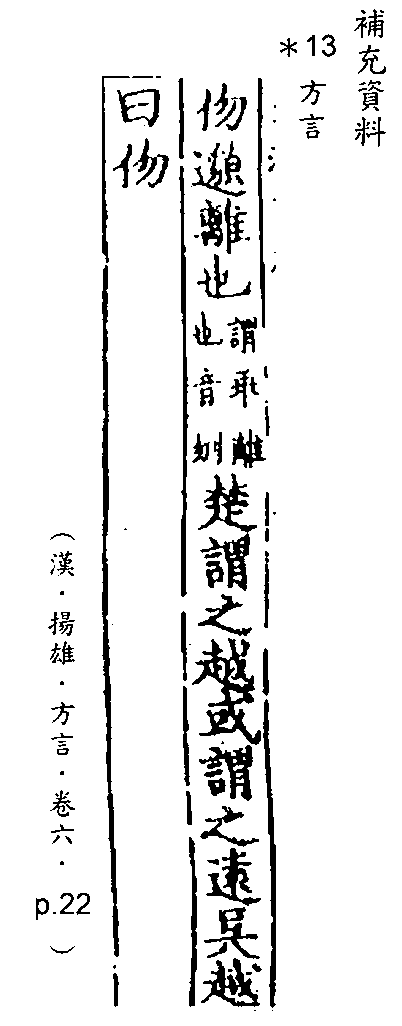 補充資料
＊13 方言
伆邈離也謂乖離也音刎楚謂之越或謂之遠吳越
曰伆
（漢．揚雄．方言．卷六．p.22）